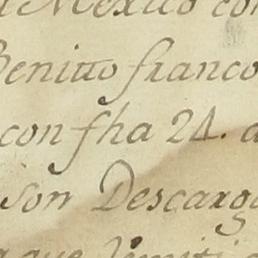 Mexico con
Benitto franco
con fha 24. d
son Descarg
que